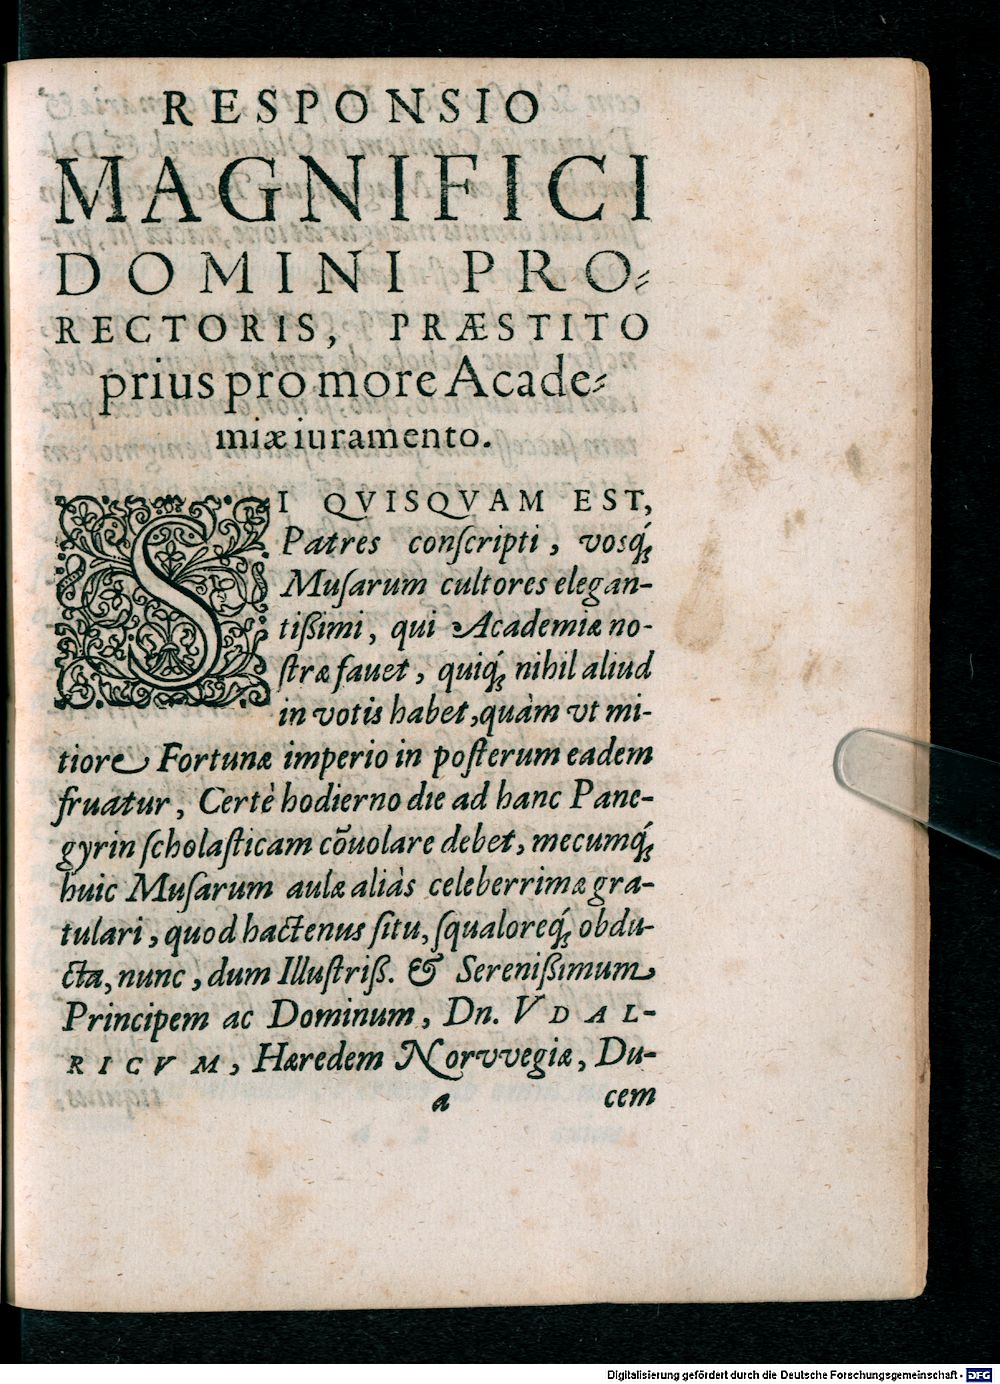 RESPONSIO
MAGNIFICI
DOMINI PRO-
RECTORIS, PRÆSTITO
prius pro more Acade-
miæ iuramento.
SI QVISQVAM EST,
Patres conſcripti, vosq́;
Muſarum cultores elegan-
tißimi, qui Academiæ no-
ſtræ fauet, quiq́; nihil aliud
in votis habet, quàm vt mi-
tiore Fortunæ imperio in poſterum eadem
fruatur, Certè hodierno die ad hanc Pane-
gyrin ſcholaſticam cōuolare debet, mecumq́;
huic Muſarum aulæ aliàs celeberrimæ gra-
tulari, quod hactenus ſitu, ſqualoreq́; obdu-
cta, nunc, dum Illuſtriß. & Serenißimum
Principem ac Dominum, Dn. VDAL-
RICVM, Hæredem Norvvegiæ, Du-
a cem
Digitalisierung gefördert durch die Deutsche Forschungsgemeinschaft - DFG